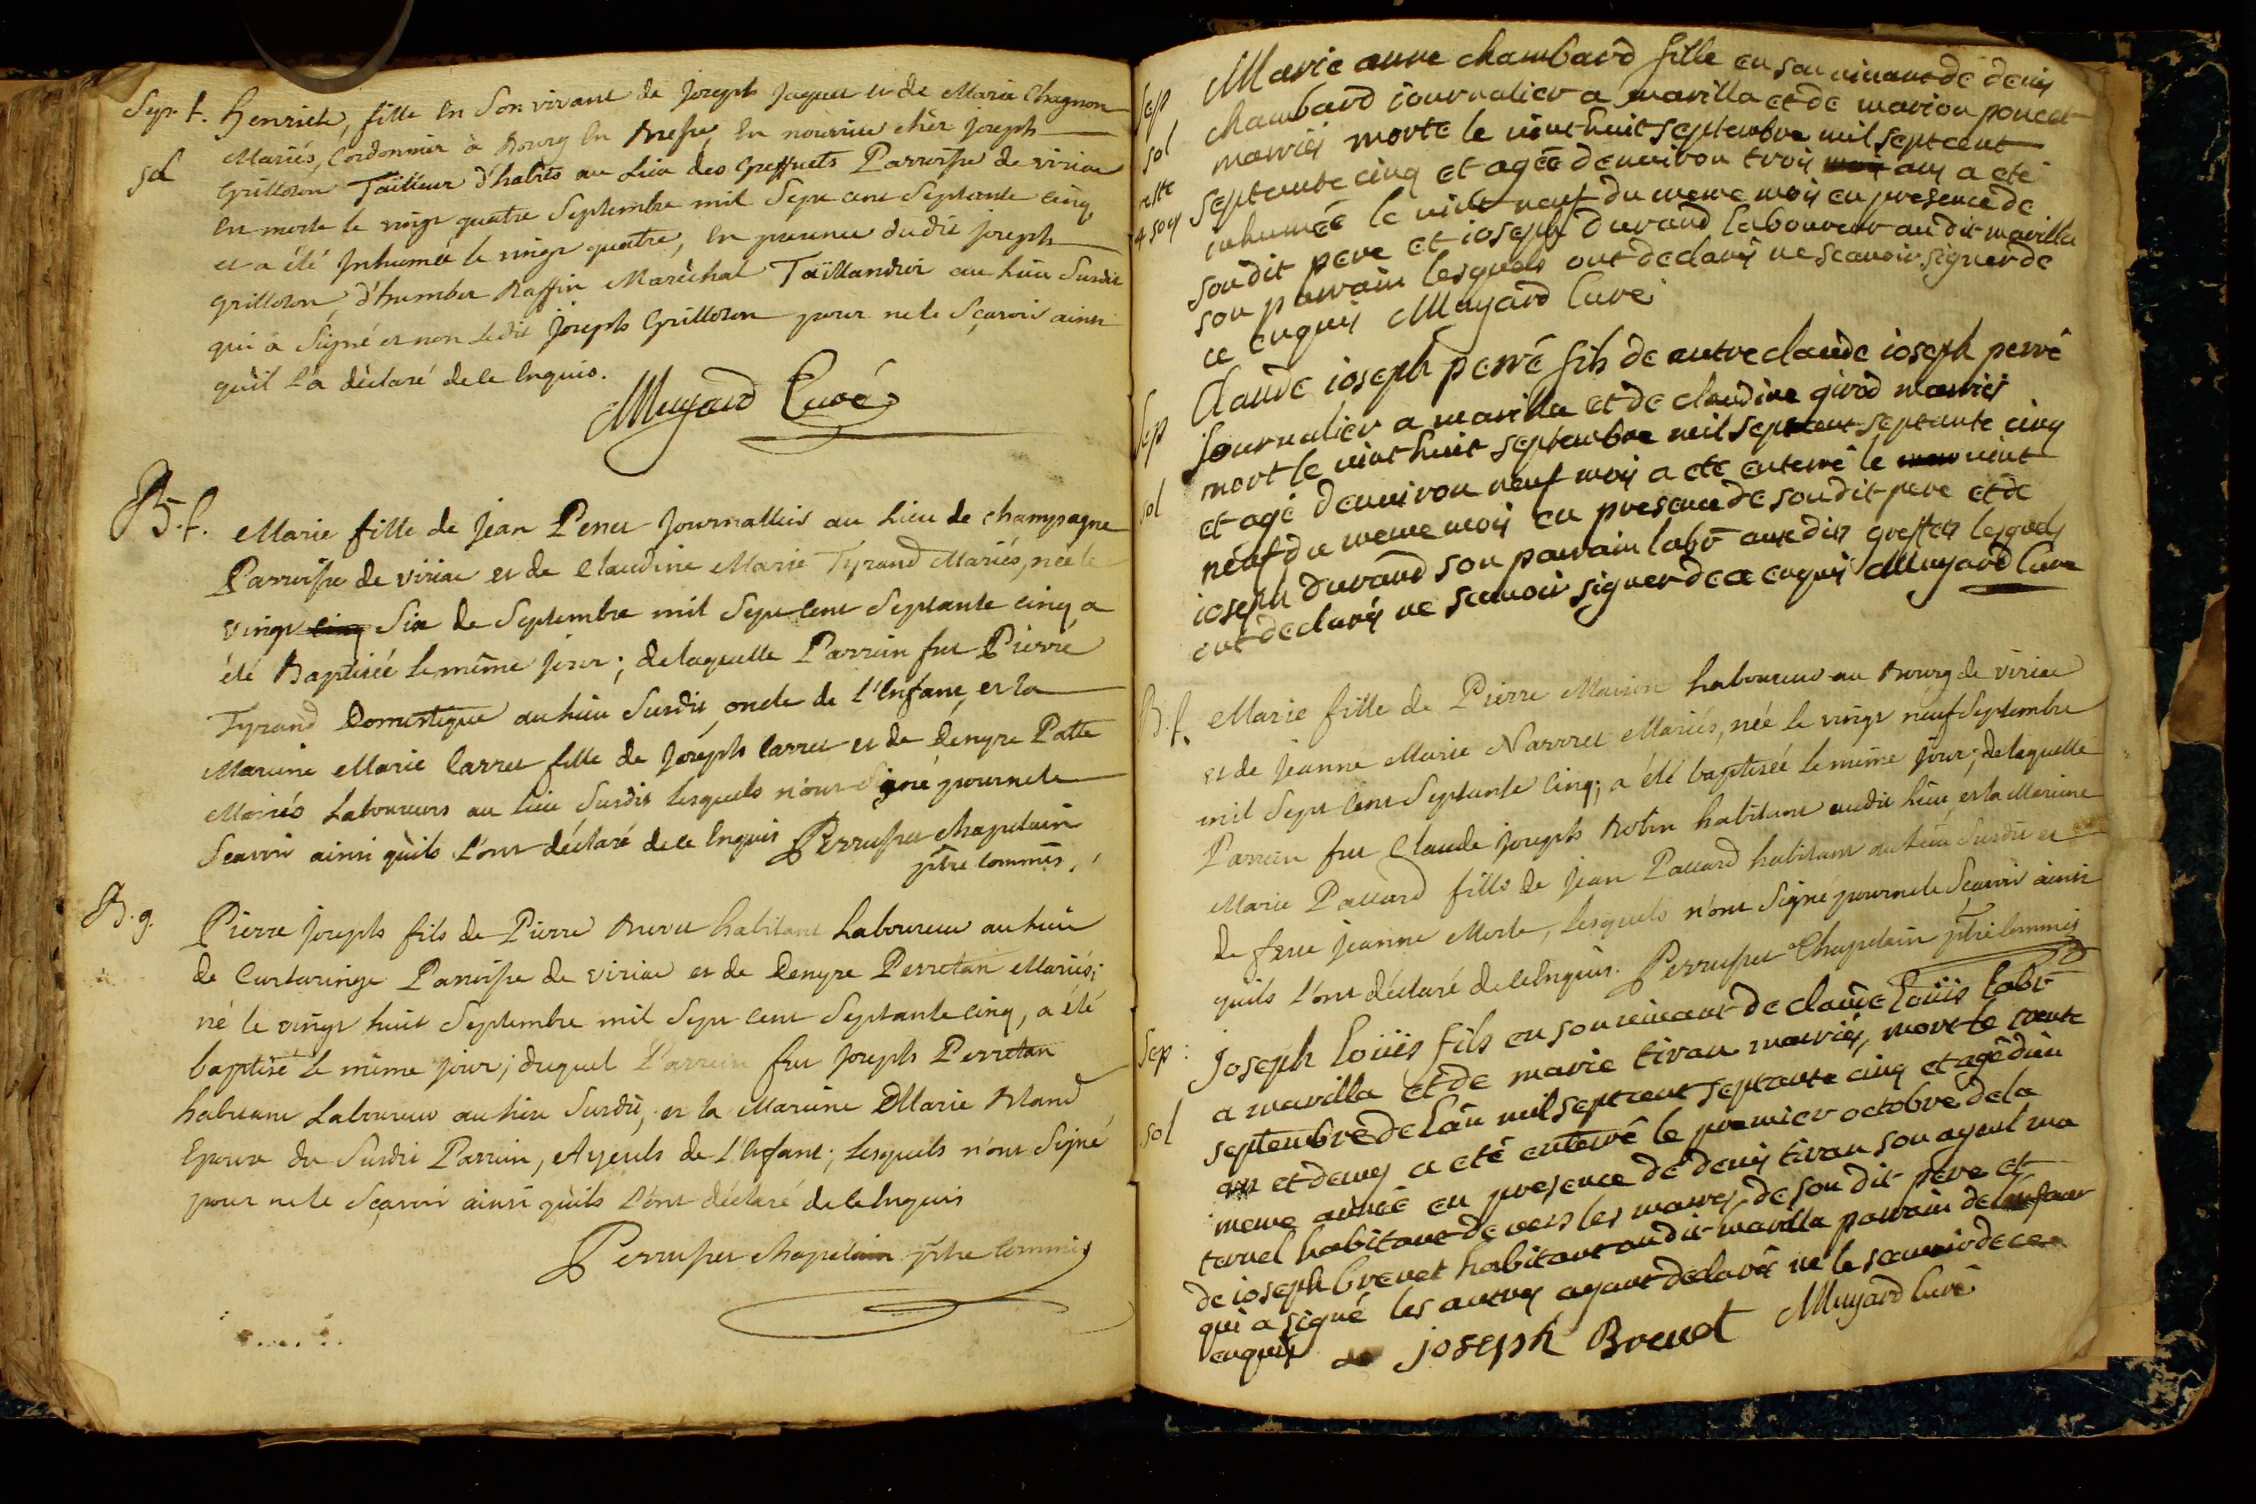 Sep. f. Henriete, fille en son vivant de Joseph Jaquet et de Marie Chagnon
Mariés, Cordonnier à Bourg en Bresse, en nourrice chés Joseph
sol Grilloton Tailleur d'habits au Lieu des Greffets Parroisse de viriac
en morte le vingt quatre Septembre mil Sept cent Septante cinq,
et a été Inhumée le vingt quatre, en presence dudit Joseph
Grilloton, d'humber Raffin Maréchal Taillandier au Lieu Susdit
qui a Signé et non Ledit Joseph Grilloton pour ne le Sçavoir ainsi
qu'il L'a déclaré de ce Enquis.
Muyard Curé
B. f. Marie fille de Jean Penet Journallier au Lieu de champagne
Parroisse de viriac et de Claudine Marie Tyrand Mariés, née le
vingt cinq Six de Septembre mil Sept Cent Septante cinq a
été Baptisée le même jour; de laquelle Parrein fut Pierre
Tyrand Domestique au Lieu Susdit, oncle de l'Enfant, et la
Mareine Marie Carret fille de Joseph Carret et de Denyse Patte
Mariés Laboureurs au Lieu Susdit lesquels n'ont Signé pour ne le
Scavoir ainsi qu'ils L'ont déclaré de ce Enquis Perruset chapelain
ptre Commis.
B. g. Pierre Joseph fils de Pierre Buvet habitant Laboureur au Lieu
de Curtaringe Parroisse de viriac et de Denyse Perretan Mariés;
né le vingt huit Septembre mil Sept Cent Septante Cinq, a été
baptisé le même jour; duquel Parrein fut Joseph Perretan
habitant Laboureur au Lieu Susdit, et la Mareine Marie Bland
Epouse du Susdit Parrein, Ayeuls de l'Enfant; lesquels n'ont Signé
pour ne le Sçavoir ainsi qu'ils L'ont déclaré de ce Enquis
Perruset chapelain ptre Commis
Sep Marie anne chambard fille en son vivant de denis
sol chambard journalier a marilla et de marion poncet
mariés morte le vint huit septembre mil septcent
septante cinq et agée denviron trois ans a eté
4 sous inhumée le vint neuf du meme mois en presence de
soudit pere et ioseph durand laboureur au dit marilla
son parrain lesquels ont declarés ne scavoir signer de
ce enquis Muyard Curé
Sep Claude ioseph perré fils de autre claude ioseph perré
Journalier a marilla et de claudine girod mariés
mort le vint huit septembre mil septcent septante cinq
sol et agé denviron neuf mois a eté enterré le vint
neuf du meme mois en presence de soudit pere et de
ioseph durand son parrain labr aux dits greffets lesquels
ont declarés ne scavoir signer de ce enquis Muyard Curé
B. f. Marie fille de Pierre Maison Laboureur au Bourg de viriac
et de Jeanne Marie Narret Mariés, née le vingt neuf Septembre
mil Sept Cent Septante Cinq; a été baptisée le même jour; de laquelle
Parrein fut Claude Joseph Robin habitant audit Lieu, et la Mareine
Marie Pauard fille de Jean Pauard habitant au Lieu Susdit et
de feue Jeanne Morte, lesquels n'ont Signé pour ne le Sçavoir ainsi
qu'ils L'ont déclaré de ce Enquis. Perruset Chapelain ptre Commis
Sep: Joseph Loüis fils en son vivant de claude Loüis labr
a marilla et de marie tiran mariés, mort le trente
sol septembre de l'an mil septcent septante cinq et agé d'un
an et demy a eté enterré le premier octobre de la
meme année en presence de denis tiran son ayeul ma
ternel habitant de vers les mares, de son dit pere et
de ioseph brevet habitant au dit marilla parrain de lenfant
qui a signé les autres ayant declarés ne le scavoir de ce
enquis joseph Brevet Muyard Curé